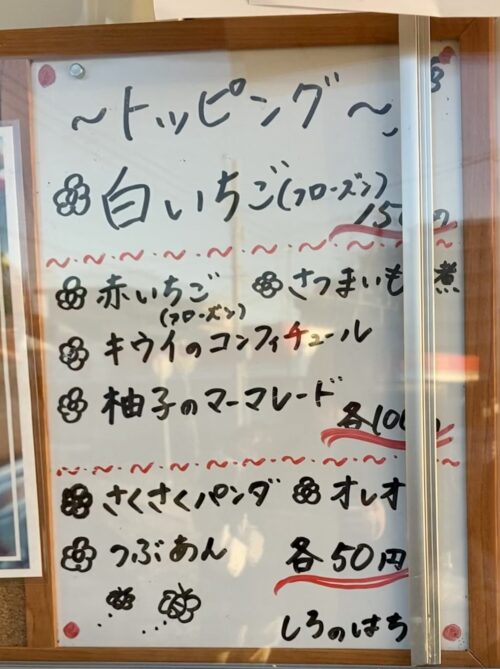 〜トッピング〜
白いちご(フローズン)
150円
赤いちご
(フローズン)
さつまいも 煮
キウイのコンフィチュール
柚子のマーマレード
各100円
さくさくパンダ
オレオ
つぶあん
各50円
しろのはち